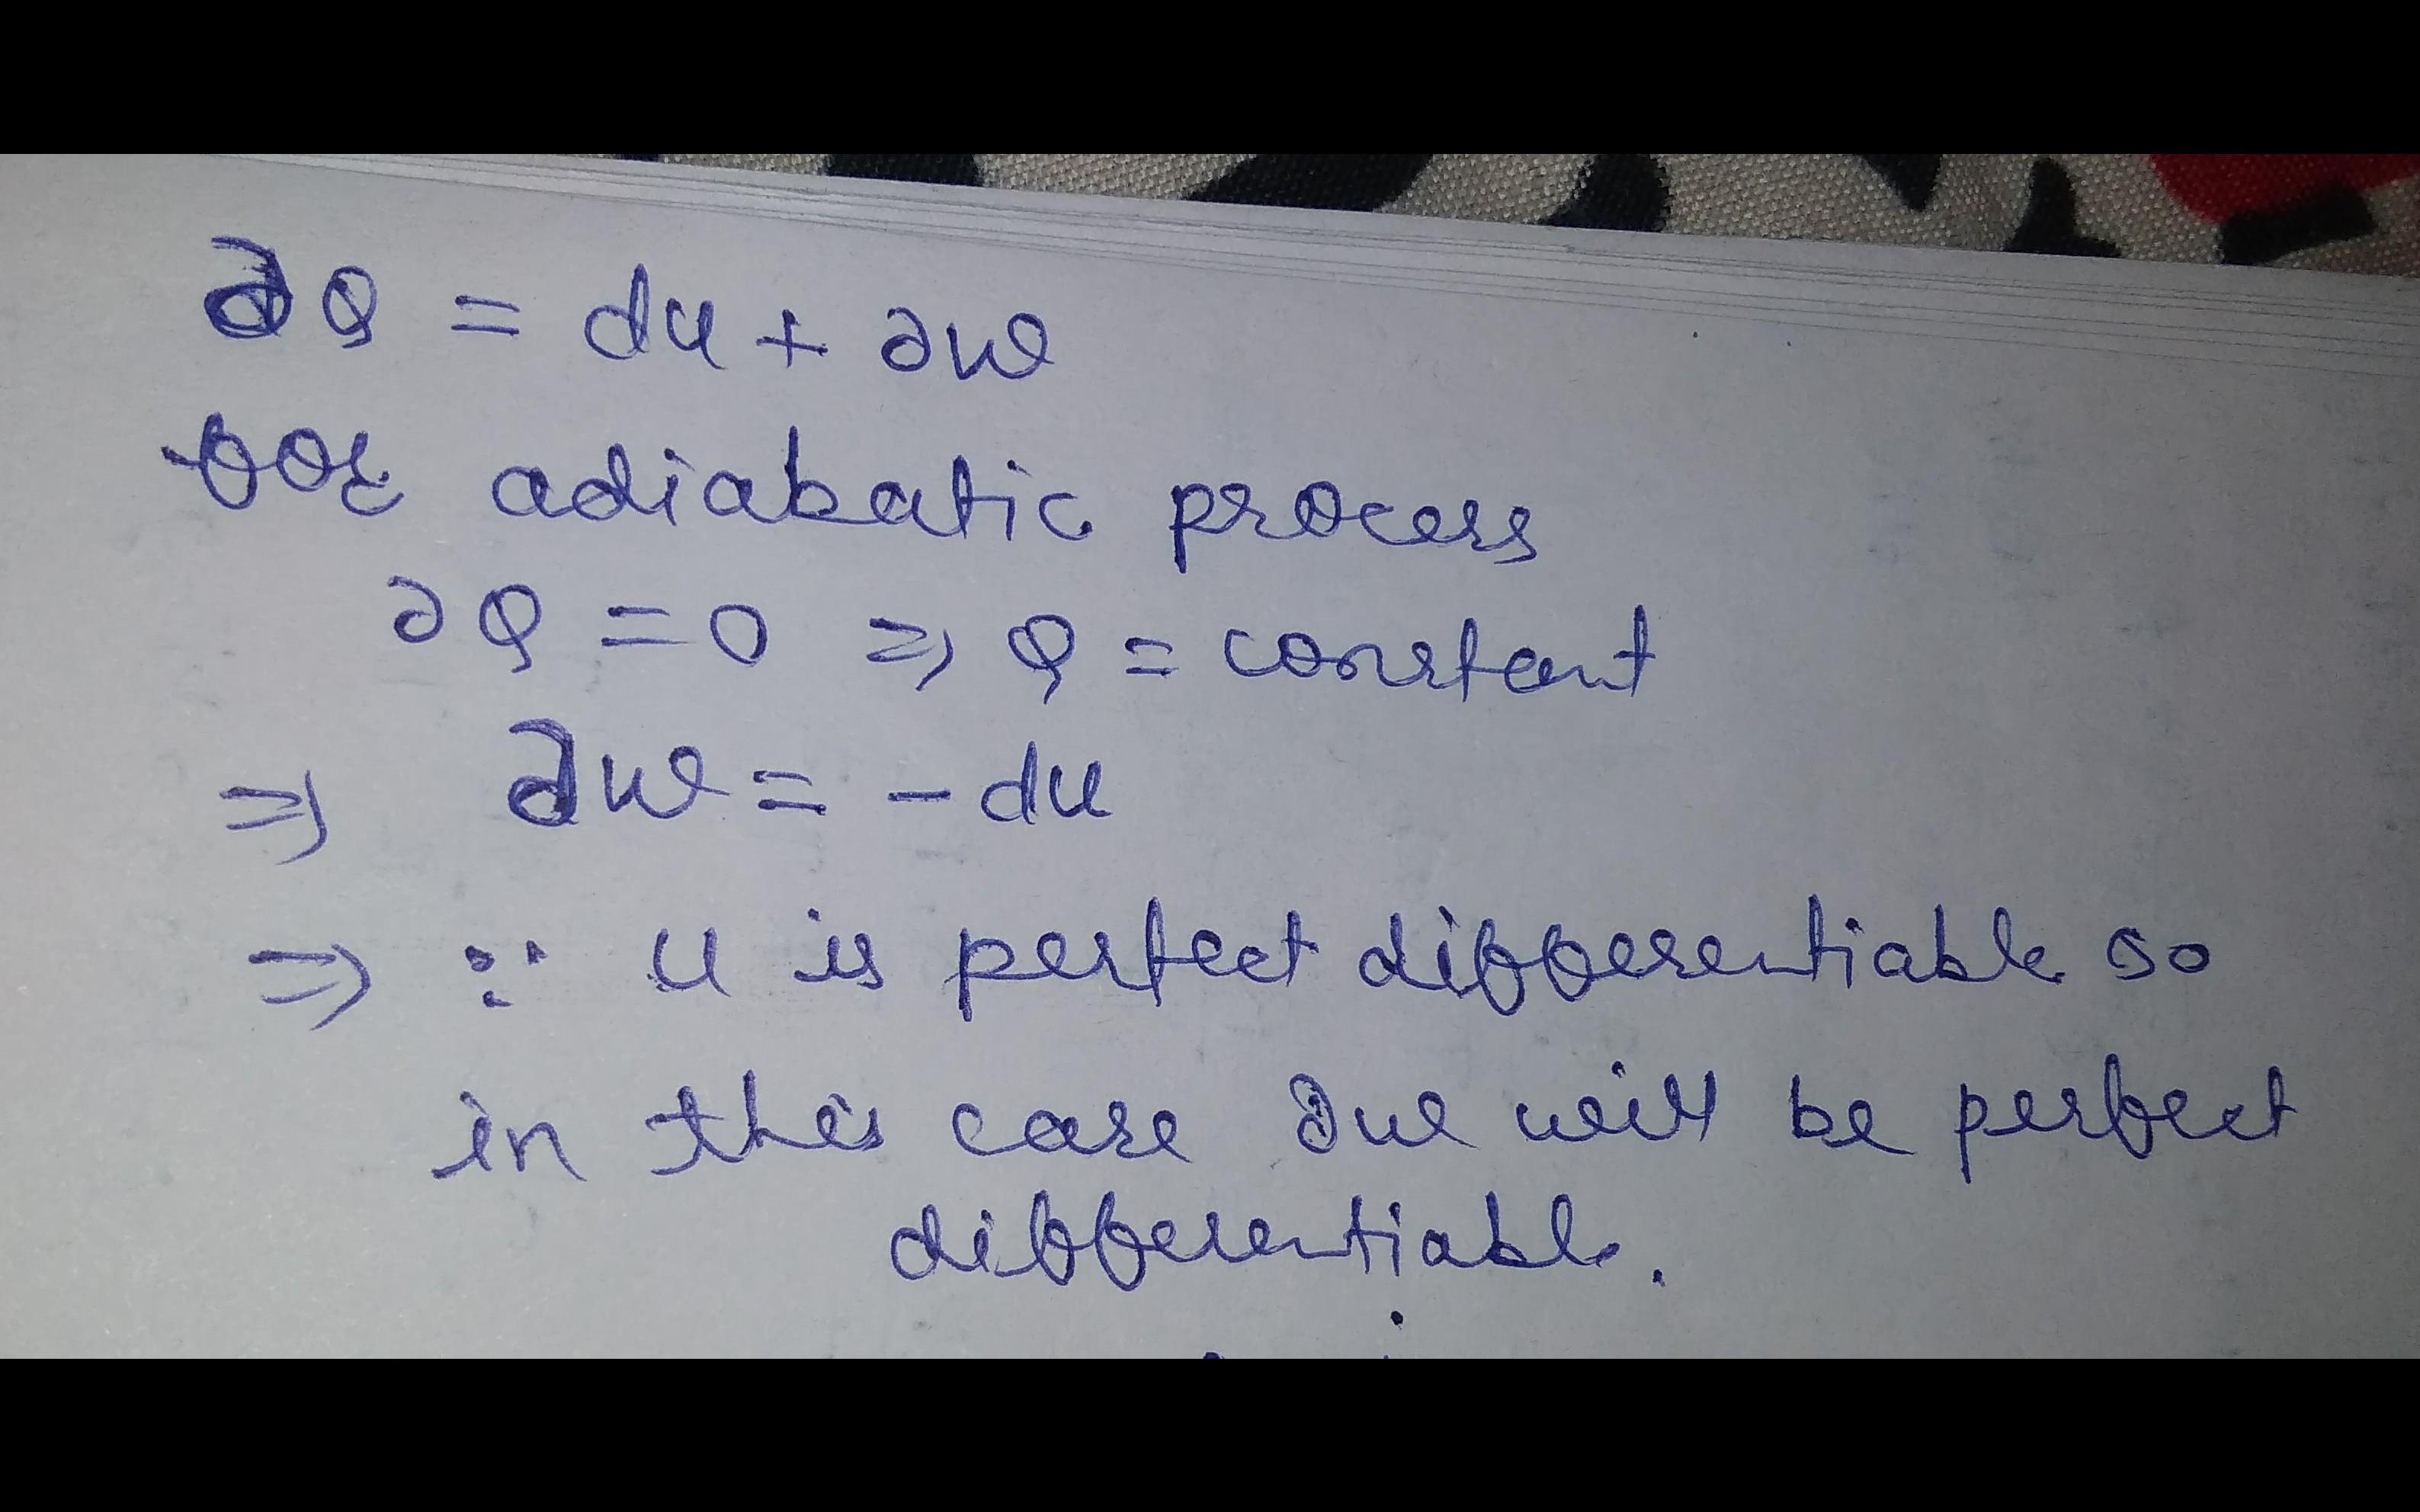 ∂Q = du + ∂w
for adiabatic process
∂Q = 0 => Q = constant
=> ∂w = - du
=> ∵ u is perfect differentiable so
in this case ∂w will be perfect
differentiable.